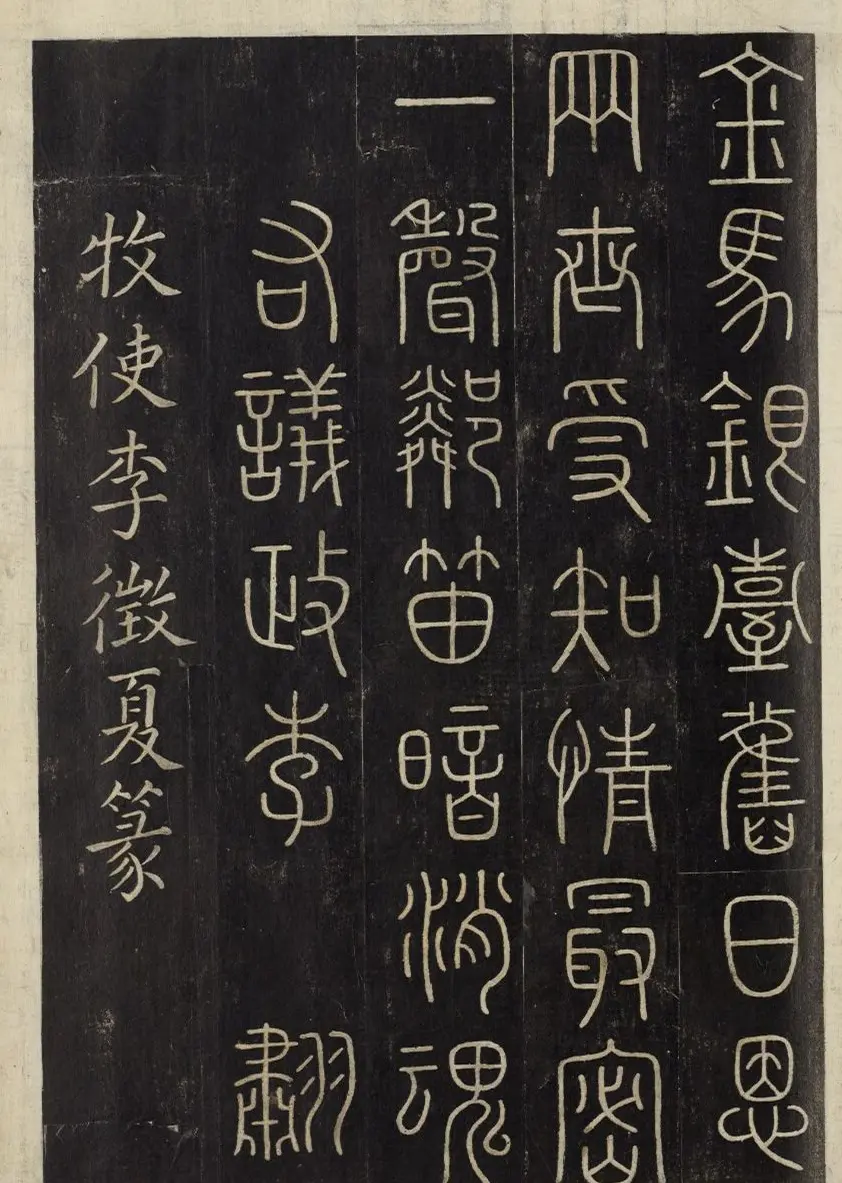 金馬銀臺舊日恩
兩世受知情最密
一聲鄰笛暗消魂
右議政李䎘
牧使李徵夏篆